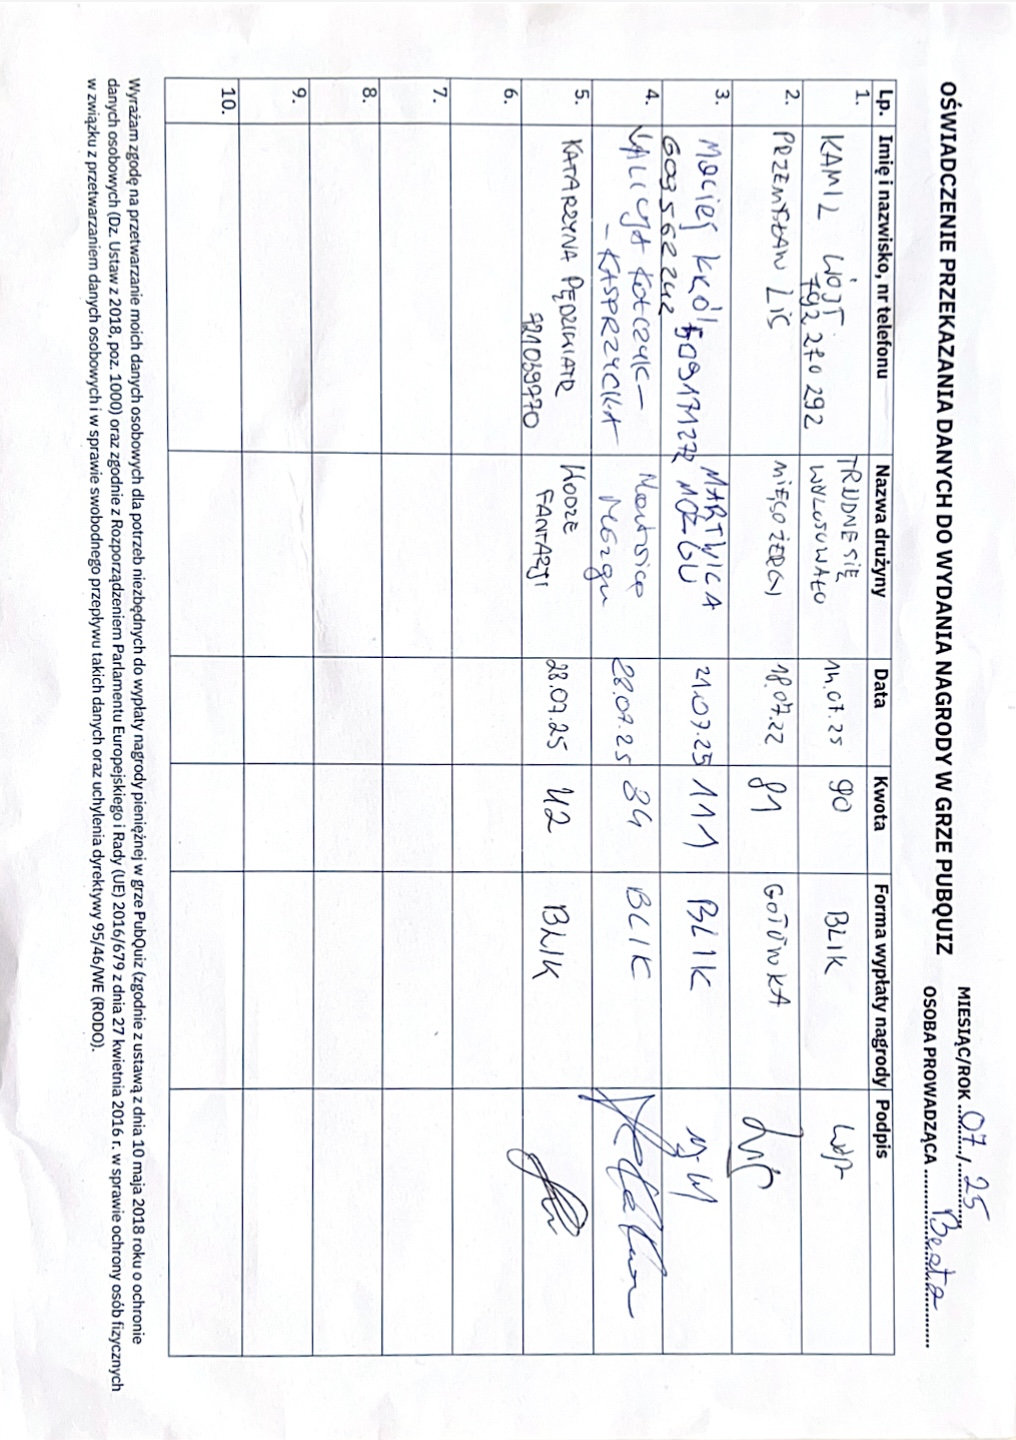 OŚWIADCZENIE PRZEKAZANIA DANYCH DO WYDANIA NAGRODY W GRZE PUBQUIZ
MIESIĄC/ROK 07, 25
OSOBA PROWADZĄCA Beata
Lp. Imię i nazwisko, nr telefonu Nazwa drużyny Data Kwota Forma wypłaty nagrody Podpis
1. KAMIL WÓJT 792 270 292 TRUDNE SIĘ WYLOSOWAŁO 14.07.25 90 BLIK
2. PRZEMYSŁAW LIS MIĘSOŻERCY 18.07.22 81 GOTÓWKA Lis
3. Maciej Król 509171272 MARTWICA MÓZGU 21.07.25 111 BLIK
609562242
4. KOŁCZYK-KASPRZYCKA Martwica Mózgu 28.07.25 84 BLIK
5. KATARZYNA PĘDZIWIATR 721059770 WODZE FANTAZJI 28.07.25 42 BLIK
6.
7.
8.
9.
10.
Wyrażam zgodę na przetwarzanie moich danych osobowych dla potrzeb niezbędnych do wypłaty nagrody pieniężnej w grze PubQuiz (zgodnie z ustawą z dnia 10 maja 2018 roku o ochronie
danych osobowych (Dz. Ustaw z 2018, poz. 1000) oraz zgodnie z Rozporządzeniem Parlamentu Europejskiego i Rady (UE) 2016/679 z dnia 27 kwietnia 2016 r. w sprawie ochrony osób fizycznych
w związku z przetwarzaniem danych osobowych i w sprawie swobodnego przepływu takich danych oraz uchylenia dyrektywy 95/46/WE (RODO).